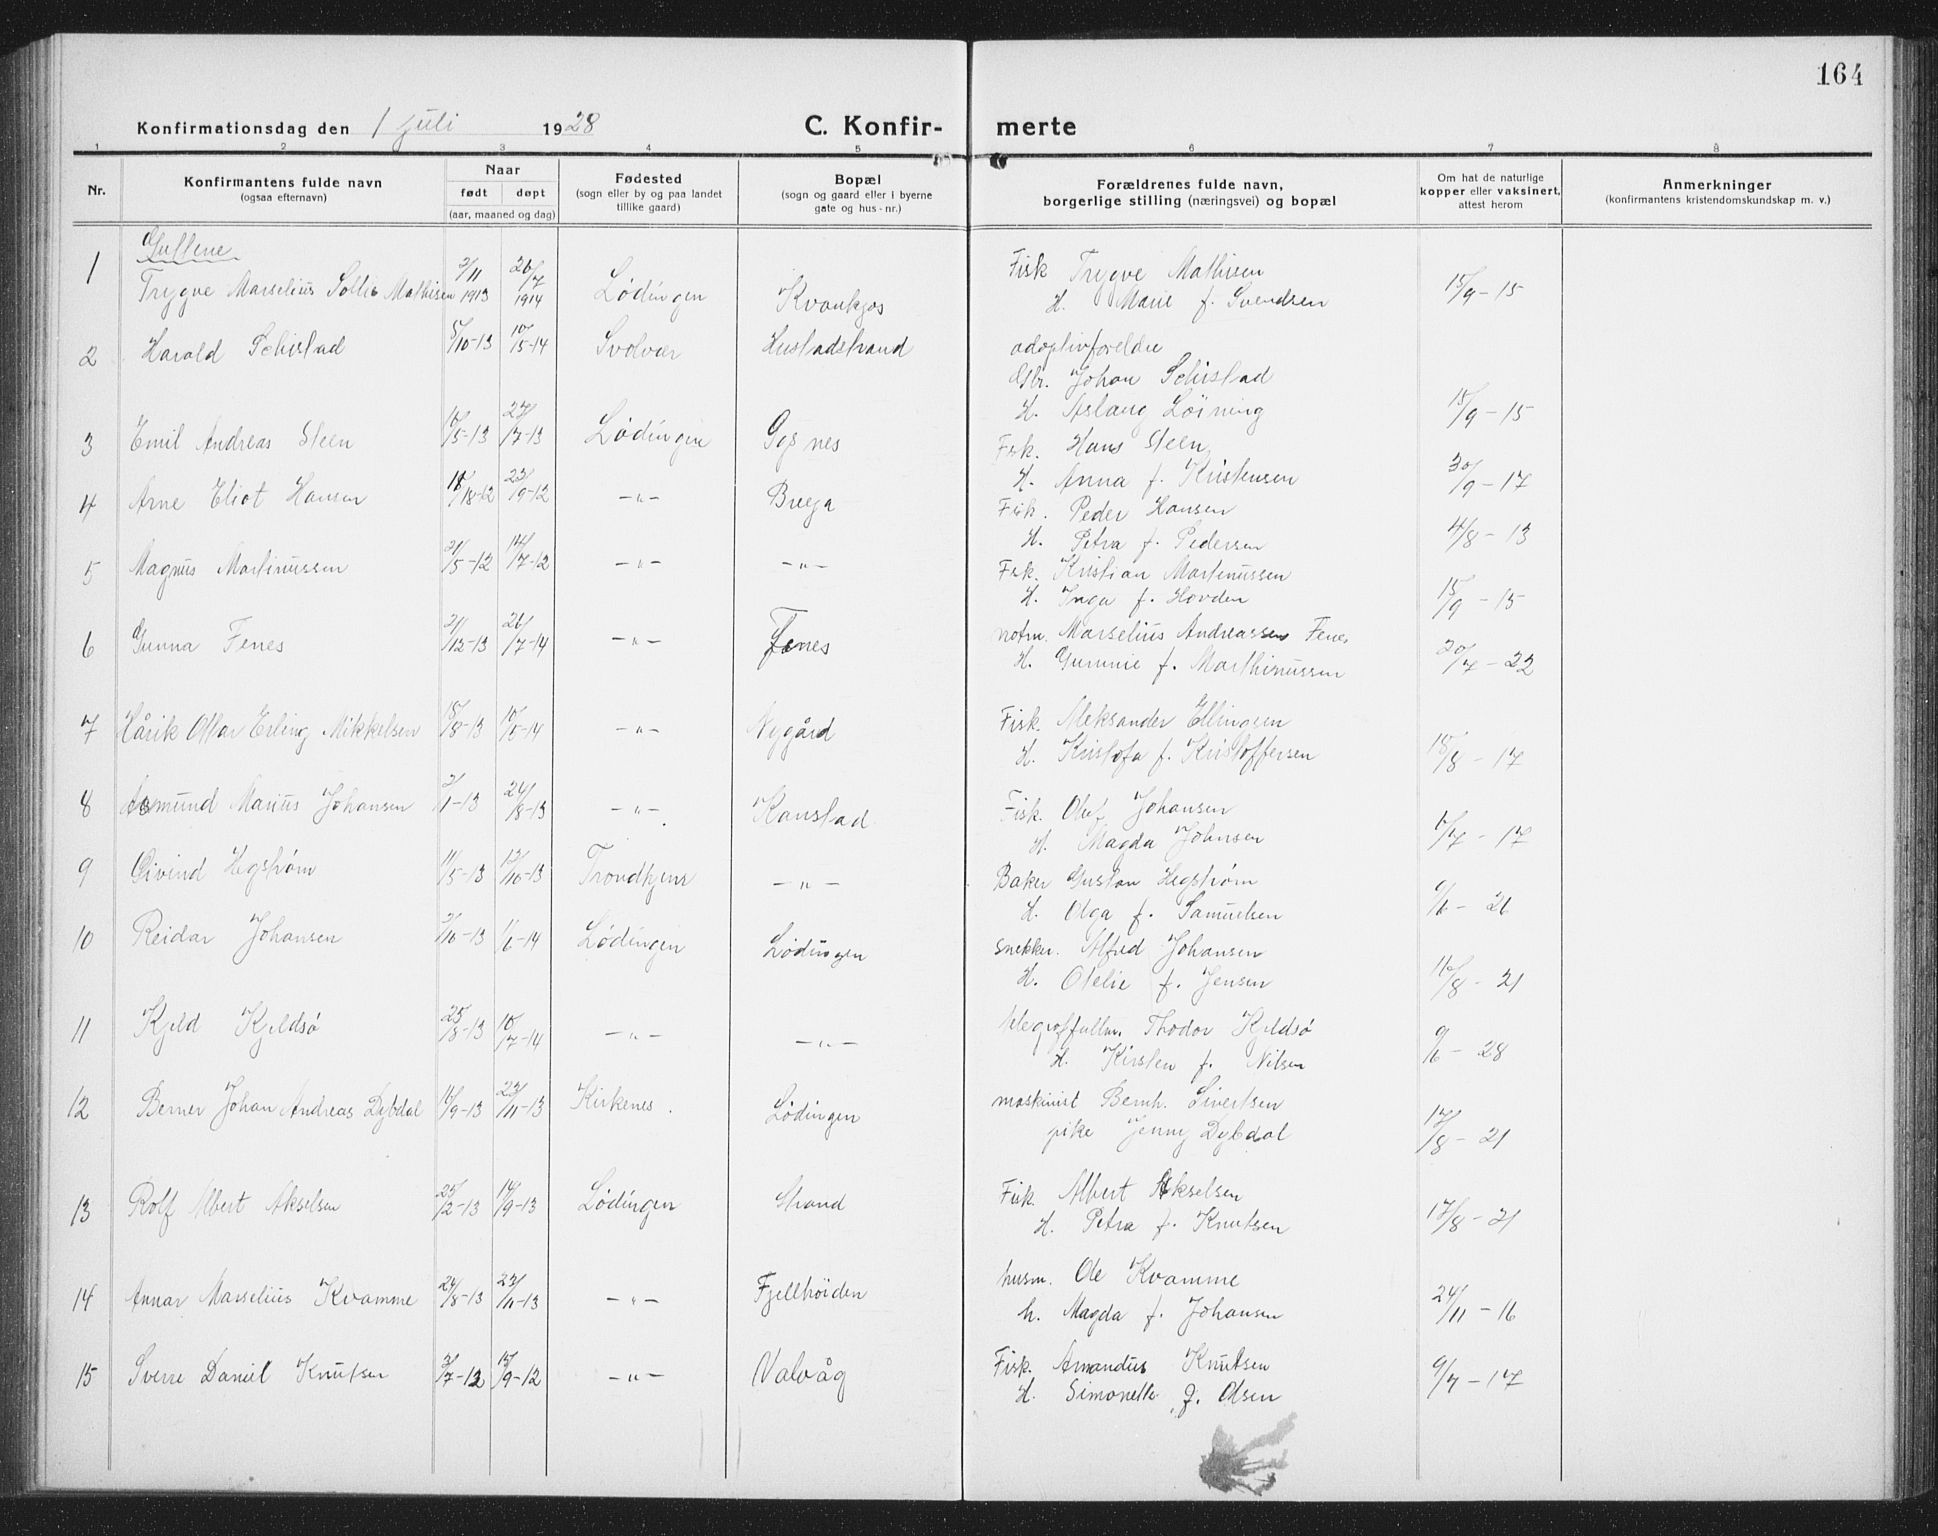 164
Konfirmationsdag den 1 juli 1928 C. Konfir- merte
1 2 3 4 5 6 7 8
Nr. Konfirmantens fulde navn (ogsaa efternavn) Naar født døpt (aar, maaned og dag) Fødested (sogn eller by og paa landet tillike gaard) Bopæl (sogn og gaard eller i byerne gate og hus-nr.) Forældrenes fulde navn, borgerlige stilling (næringsvei) og bopæl Om hat de naturlige kopper eller vaksinert, attest herom Anmerkninger (konfirmantens kristendomskundskap m. v.)
Guttene
1 Trygve Marselius Mathisen 2/11 1913 26/7 1914 Lødingen Fisk Trygve Mathisen 15/9-15
H. Marie f. Svendsen
2 Harald Schistad 5/10-13 10/5-14 Svolvær Hustadstrand adoptivforeldre
Gbr. Johan Schistad
H. Aslaug Løining 15/9-15
3 Emil Andreas Steen 27/7-13 Lødingen Fisk. Hans Steen
H. Anna f. Kristensen 30/9-17
4 Arne Eliot Hansen 23/9-12 -"- Fisk. Peder Hansen
H. Petra f. Pedersen 4/8-13
5 Magnus Martinussen 21/5-12 14/7-12 -"- -"- Fisk. Kristian Martinussen
H. Inga f. Hovden 15/9-15
6 Gunna Fenes 21/12-13 26/7-14 -"- Fenes notm. Marselius Andreassen Fenes
H. Gunnie f. Marthinussen 20/7-22
7 Hårik Ottar Erling Mikkelsen 15/8-13 10/5-14 -"- Nygård Fisk. Aleksander Ellingsen
H. Kristofa f. Kristoffersen 15/8-17
8 Asmund Marius Johansen 2/1-13 24/8-13 -"- Kanstad Fisk. Oluf Johansen
H. Magda Johnsen
9 Eivind Hegstrøm 11/5-13 12/10-13 Trondhjem -"- Baker Gustav Hegstrøm
H. Olga f. Samuelsen
10 Reidar Johansen 2/10-13 1/6-14 Lødingen Lødingen snekker. Alfred Johansen
H. Otelie f. Jensen 16/8-21
11 Kjeld Kjeldsø 25/8-13 10/7-14 -"- -"- Thodor Kjeldsø
H. Kirsten f. Nilsen 9/6-28
12 Berner Johan Andreas Dybdal 23/11-13 Kirkenes. Lødingen maskinist Bernh. Sivertsen
pike Jenny Dybdal 17/8-21
13 Rolf Albert Akselsen 25/2-13 14/9-13 Lødingen Strand Fisk. Albert Akselsen
H. Petra f. Knutsen 17/8-21
14 Annar Marselius Kvamme 24/8-13 23/11-13 -"- Fjellhøiden husm. Ole Kvamme
h. Magda f. Johansen 24/11-16
15 Sverre Daniel Knutsen 2/7-12 15/9-12 -"- Valvåg Fisk. Amandus Knutsen
H. Simonette f. Olsen 9/7-17